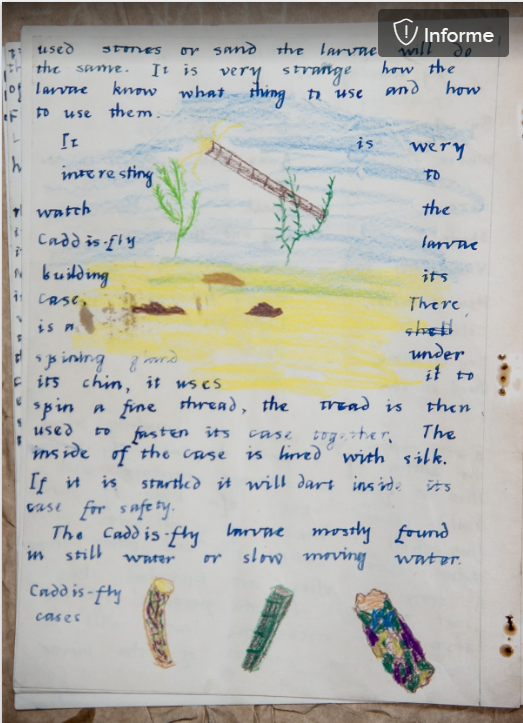 Informe
used stones or sand the larvae will do
the same. It is very strange how the
larvae know what thing to use and how
to use them.
It is wery
interesting to
watch the
Caddis-fly larvae
building its
case. There
is a shell
spining gland under
its chin, it uses it to
spin a fine thread, the tread is then
used to fasten its case together. The
inside of the case is lined with silk.
If it is startled it will dart inside its
case for safety.
The Caddis-fly larvae mostly found
in still water or slow moving water.
Caddis-fly
cases